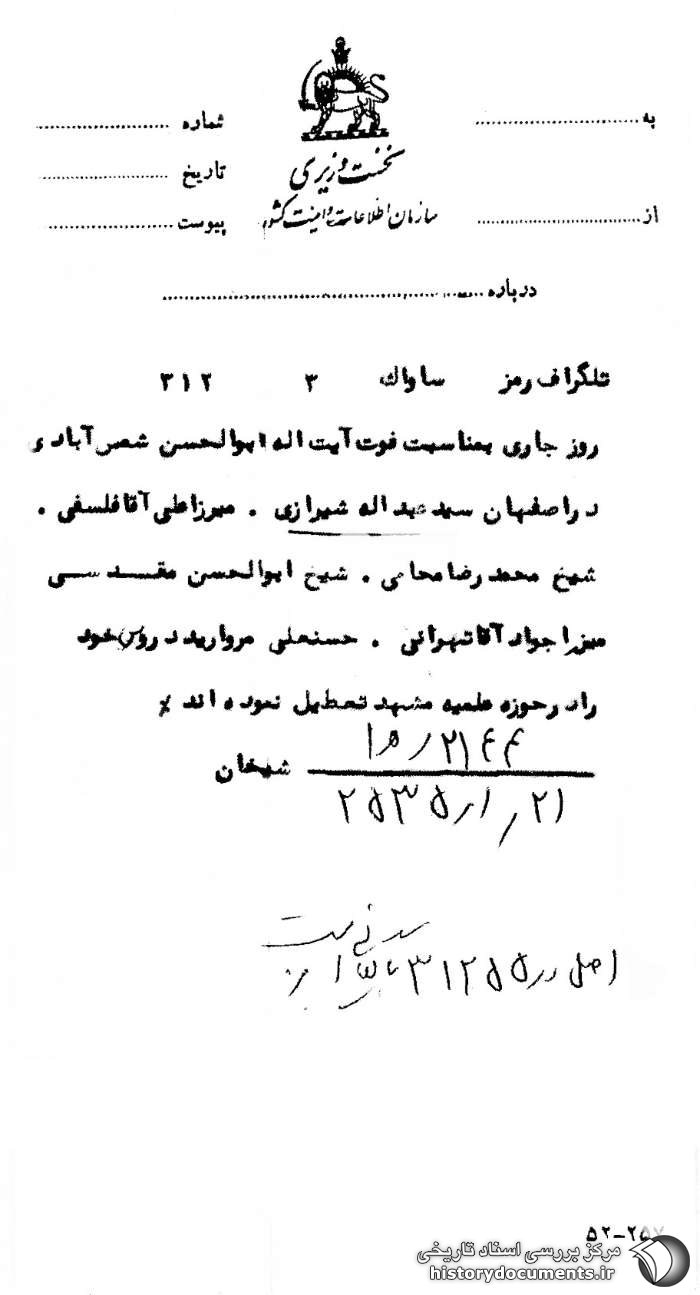 به ............ شماره ............
نخست وزیری
تاریخ ............
سازمان اطلاعات و امنیت کشور
از ............ پیوست ............
درباره ............
تلگراف رمز ساواك ۳ ۳۱۲
روز جاری بمناسبت فوت آیت اله ابوالحسن شمس آبادی
در اصفهان سید عبداله شیرازی . میرزاعلی آقا فلسفی .
شیخ محمد رضا محامی . شیخ ابوالحسن مقدسی
میرزا جواد آقا تهرانی . حسنعلی مروارید دروس خود
را در حوزه علمیه مشهد تعطیل نموده اند
شیخان
۲۱ر۱ر۲۵۳۵
اصل در ۳۱۲۵۵
۵۲-۲۵۷
مرکز بررسی اسناد تاریخی
historydocuments.ir